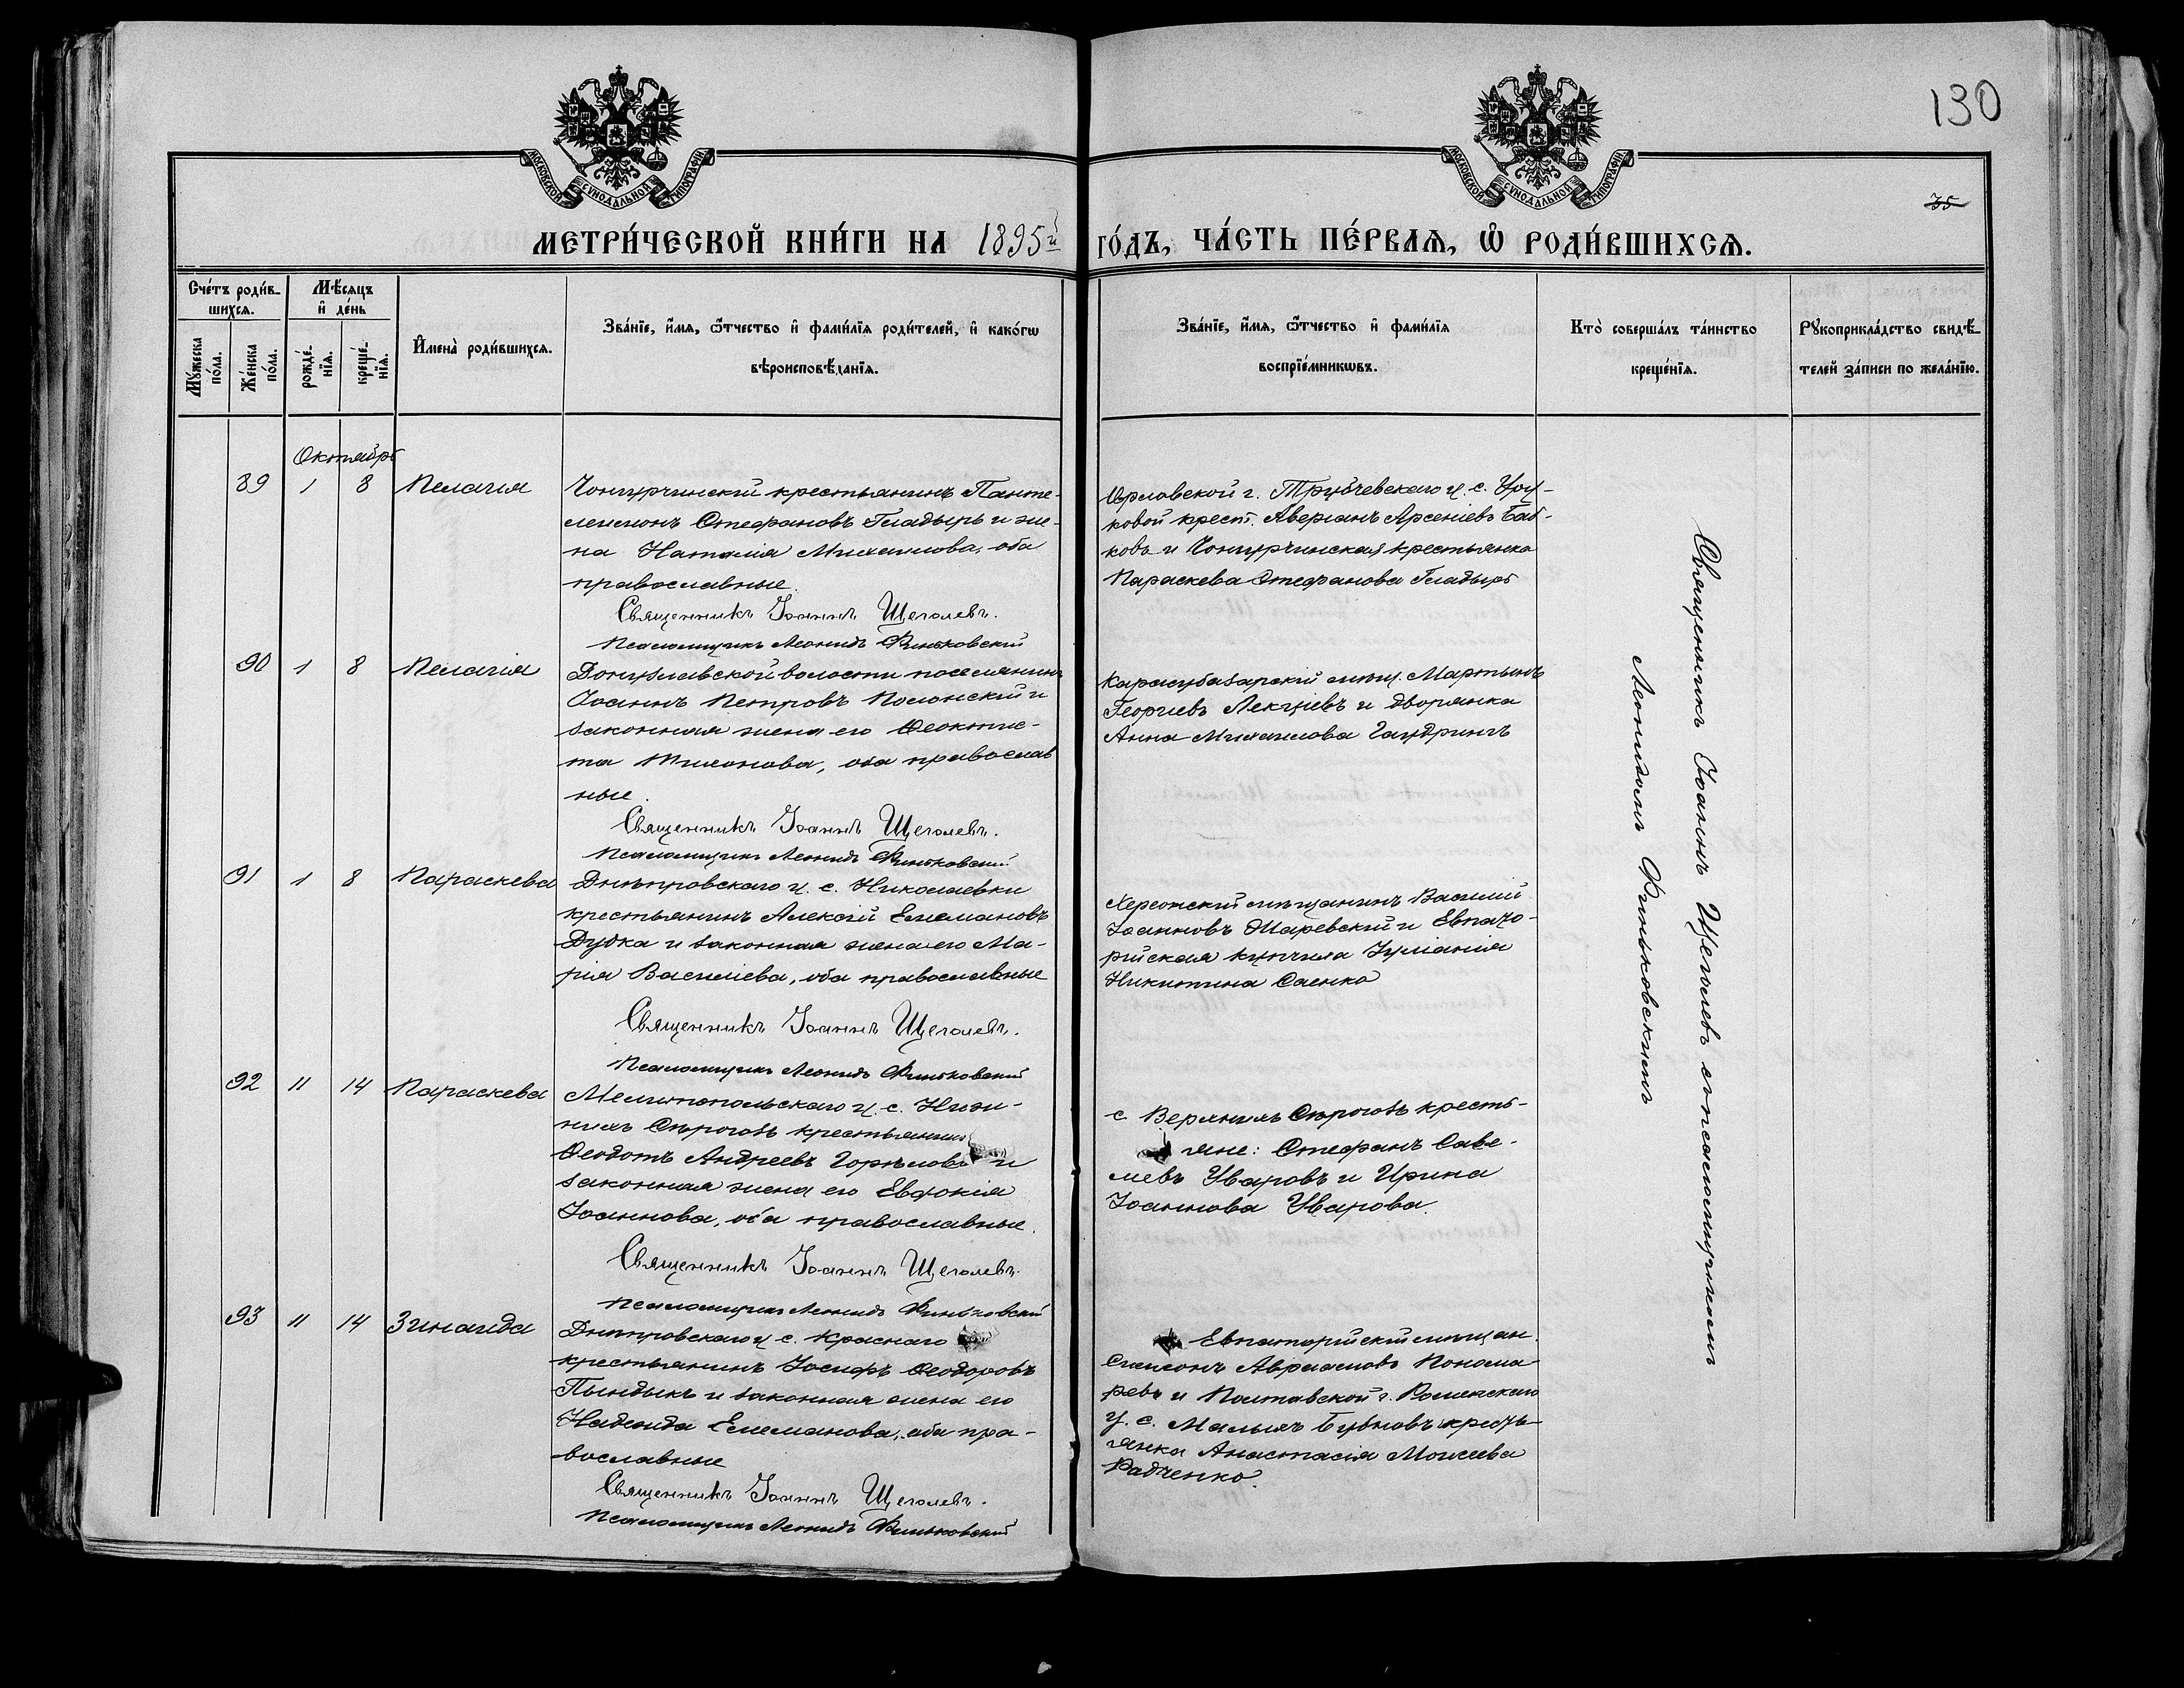 130
35
МОСКОВСКОЙ СѴНОДАЛЬНОЙ ТИПОГРАФІИ
МОСКОВСКОЙ СѴНОДАЛЬНОЙ ТИПОГРАФІИ
МЕТРИ́ЧЕСКОЙ КНИ́ГИ НА 1895й ГО́ДЪ, ЧА́СТЬ ПЕ́РВАѦ, Ѡ҆ РОДИ́ВШИХСѦ.
Сче́тъ роди́в-
шихсѧ.
Мꙋ́жеска по́ла.
Же́нска по́ла.
Мѣ́сѧцъ
и҆ де́нь
рожде́-
нїѧ.
креще́-
нїѧ.
И҆мена̀ роди́вшихсѧ.
Зва́нїе, и҆́мѧ, ѻ҆́тчество и҆ фами́лїѧ роди́телей, и҆ како́гѡ
вѣроисповѣ́данїѧ.
Зва́нїе, и҆́мѧ, ѻ҆́тчество и҆ фами́лїѧ
воспрїе́мникѡвъ.
Кто̀ соверша́лъ та́инство
креще́нїѧ.
Рꙋкоприкла́дство свидѣ́-
телей за́писи по жела́нїю.
Октябрь
89 1 8 Пелагія
Чонгурчинскій крестьянинъ Панте-
леимонъ Стефановъ Гладырь и же-
на Наталія Михаилова, оба
православные.
Священникъ Іоаннъ Щеголевъ.
Псаломщикъ Леонидъ Финьковскій
Орловской г. Трубчевскаго у. с.
ковой крест. Аверіанъ Арсеніевъ Баб-
ковъ и Чонгурчинская крестьянка
Параскева Стефанова Гладырь
90 1 8 Пелагія
Донузлавской волости поселянинъ
Іоаннъ Петровъ Полонскій и
законная жена его Ѳеокти-
та Тихонова, оба православ
ные.
Священникъ Іоаннъ Щеголевъ.
Псаломщикъ Леонидъ Финьковскій
Карасубазарскій мѣщ. Мартынъ
Георгіевъ и дворянка
Анна Михаилова Гаудрингъ
91 1 8 Параскева
Днѣпровскаго у. с. Николаевки
крестьянинъ Алексій Емелиановъ
Дудка и законная жена его Ма-
рія Василіева, оба православные
Священникъ Іоаннъ Щеголевъ.
Псаломщикъ Леонидъ Финьковскій
Херсонскій мѣщанинъ Василій
Іоанновъ Шаревскій и Евпато-
рійская купчиха Іуліанія
Никитина Саенко
92 11 14 Параскева
Мелитопольскаго у. с. Ниж-
нихъ Сѣрогозъ крестьянинъ
Ѳеодотъ Андреевъ Горѣловъ и
законная жена его Евдокія
Іоаннова, оба православные.
Священникъ Іоаннъ Щеголевъ.
Псаломщикъ Леонидъ Финьковскій
с. Верхнихъ Сѣрогозъ кресть-
яне: Стефанъ Саве-
лиевъ Уваровъ и Ирина
Іоаннова Уварова.
93 11 14 Зинаида
Днѣпровскаго у. с. Краснаго
крестьянинъ Іосифъ Ѳеодоровъ
Пындыкъ и законная жена его
Надежда Емелианова, оба пра-
вославные
Священникъ Іоаннъ Щеголевъ.
Псаломщикъ Леонидъ Финьковскій
Евпаторійскій мѣщан.
Симеонъ Авраамовъ Понома-
ревъ и Полтавской г. Роменскаго
у. с. Малыхъ Бубновъ кресть-
янка Анастасія Моисеева
Радченко.
Священникъ Іоаннъ Щеголевъ съ псаломщикомъ
Леонидомъ Финьковскимъ